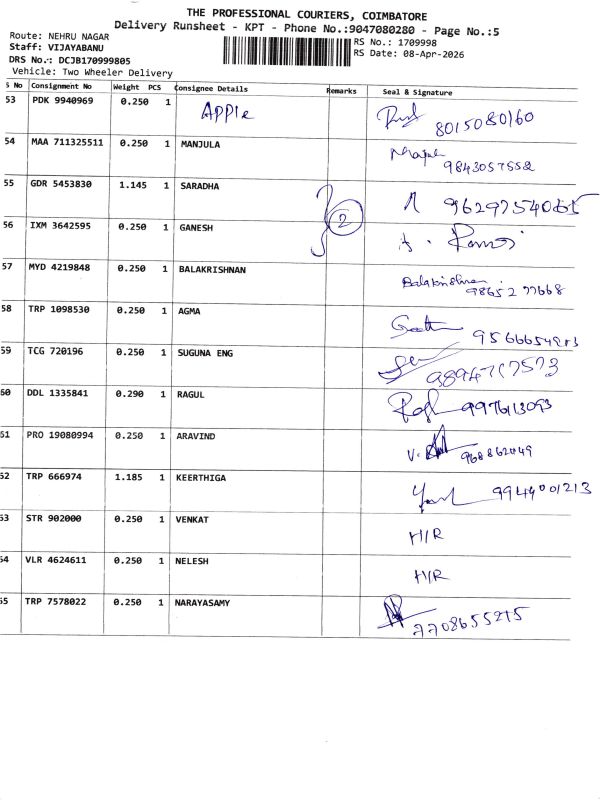 THE PROFESSIONAL COURIERS, COIMBATORE
Delivery Runsheet - KPT - Phone No.:9047080280 - Page No.:5
Route: NEHRU NAGAR
Staff: VIJAYABANU
DRS No.: DCJB170999805
Vehicle: Two Wheeler Delivery
RS No.: 1709998
RS Date: 08-Apr-2026
S No Consignment No Weight PCS Consignee Details Remarks Seal & Signature
53 PDK 9940969 0.250 1 APPle 8015080160
54 MAA 711325511 0.250 1 MANJULA 9843057552
55 GDR 5453830 1.145 1 SARADHA
2
56 IXM 3642595 0.250 1 GANESH
57 MYD 4219848 0.250 1 BALAKRISHNAN Balakrishnan
98652 77668
58 TRP 1098530 0.250 1 AGMA
59 TCG 720196 0.250 1 SUGUNA ENG
60 DDL 1335841 0.290 1 RAGUL
61 PRO 19080994 0.250 1 ARAVIND
62 TRP 666974 1.185 1 KEERTHIGA 9944001213
53 STR 902000 0.250 1 VENKAT H/R
54 VLR 4624611 0.250 1 NELESH H/R
55 TRP 7578022 0.250 1 NARAYASAMY 7708655215